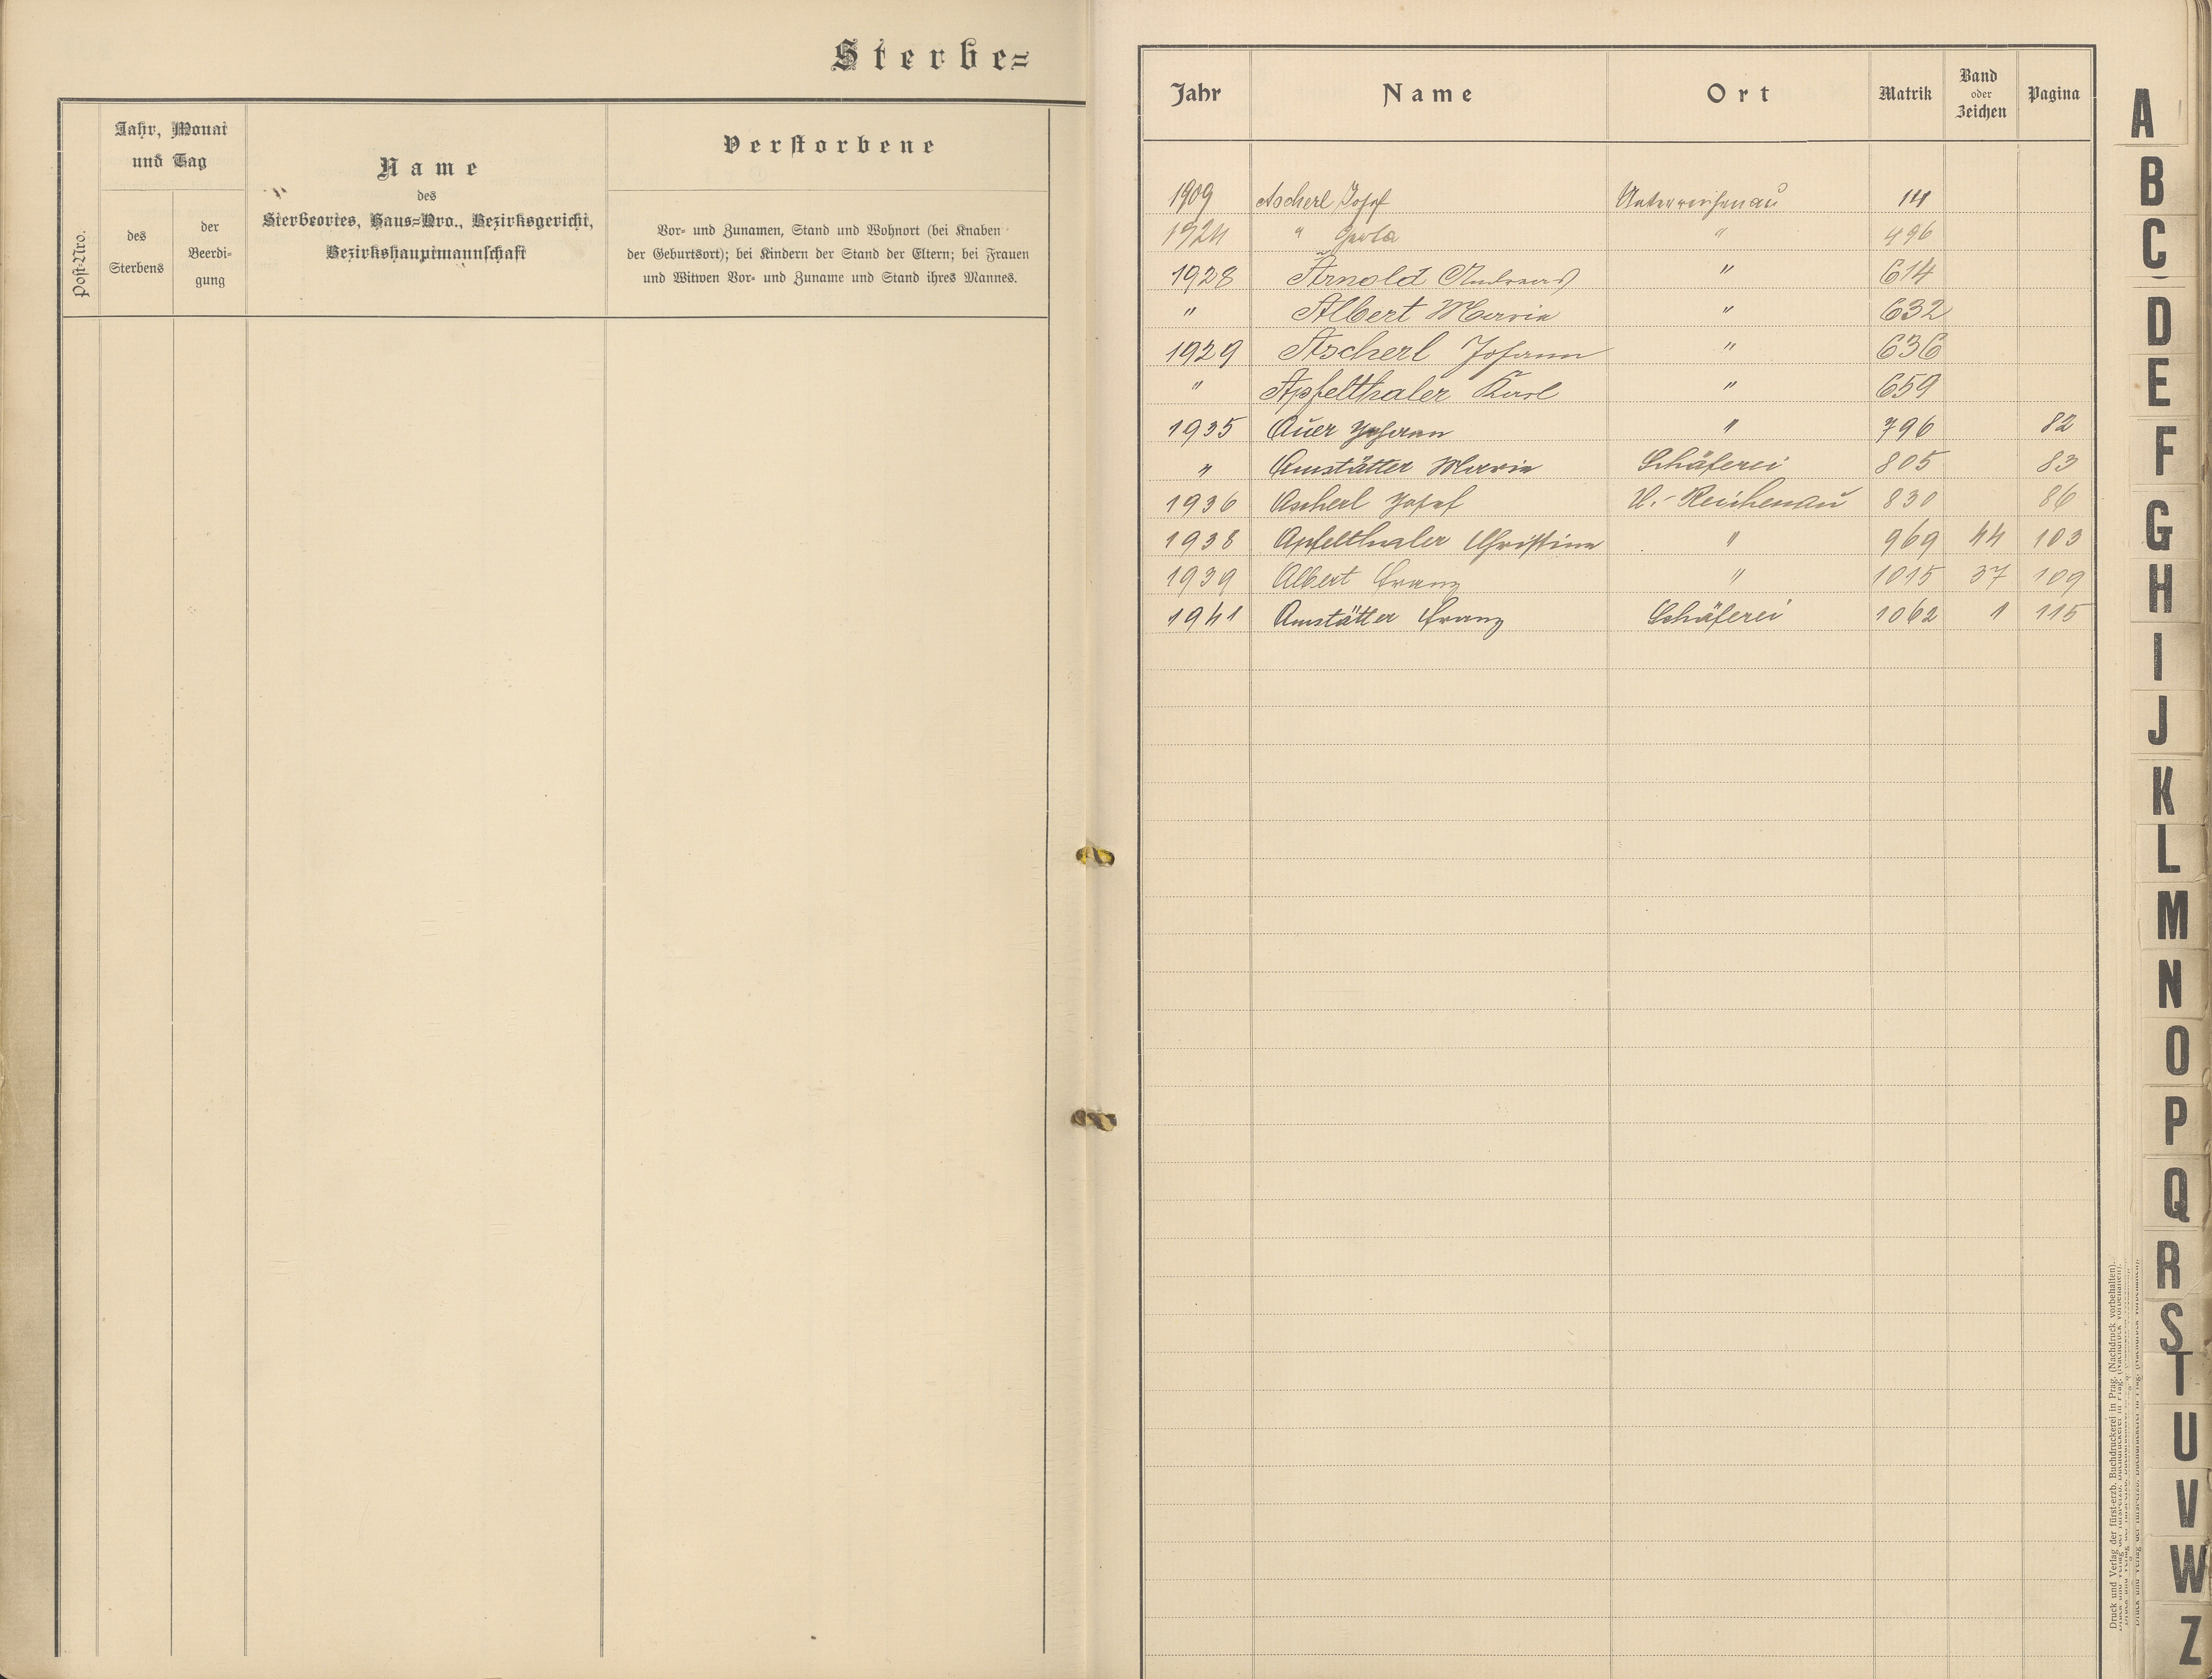 Sterbe=
Post=Nro.
Jahr, Monat
und Tag
des
Sterbens
der
Beerdi-
gung
Name
des
Sterbeortes, Haus=Nro., Bezirksgericht,
Bezirkshauptmannschaft
Verstorbene
Vor- und Zunamen, Stand und Wohnort (bei Knaben
der Geburtsort); bei Kindern der Stand der Eltern; bei Frauen
und Witwen Vor- und Zuname und Stand ihres Mannes.
Jahr Name Ort Matrik Band oder Zeichen Pagina
1909 Ascherl Josef Unterreichenau 111
1924 " " 496
1928 Arnold Andreas " 614
" Albert Maria " 632
1929 Ascherl Johann " 636
" Apfelthaler Karl " 659
1935 Auer Johann " 796 82
" Amstätter Maria Schäferei 805 83
1936 Ascherl Josef U.-Reichenau 830 86
1938 Apfelthaler Christine " 969 44 103
1939 Albert Franz " 1015 37 109
1941 Amstätter Franz Schäferei 1062 1 115
A
B
C
D
E
F
G
H
I
J
K
L
M
N
O
P
Q
R
S
T
U
V
W
Z
Druck und Verlag der fürst-erzb. Buchdruckerei in Prag. (Nachdruck vorbehalten).